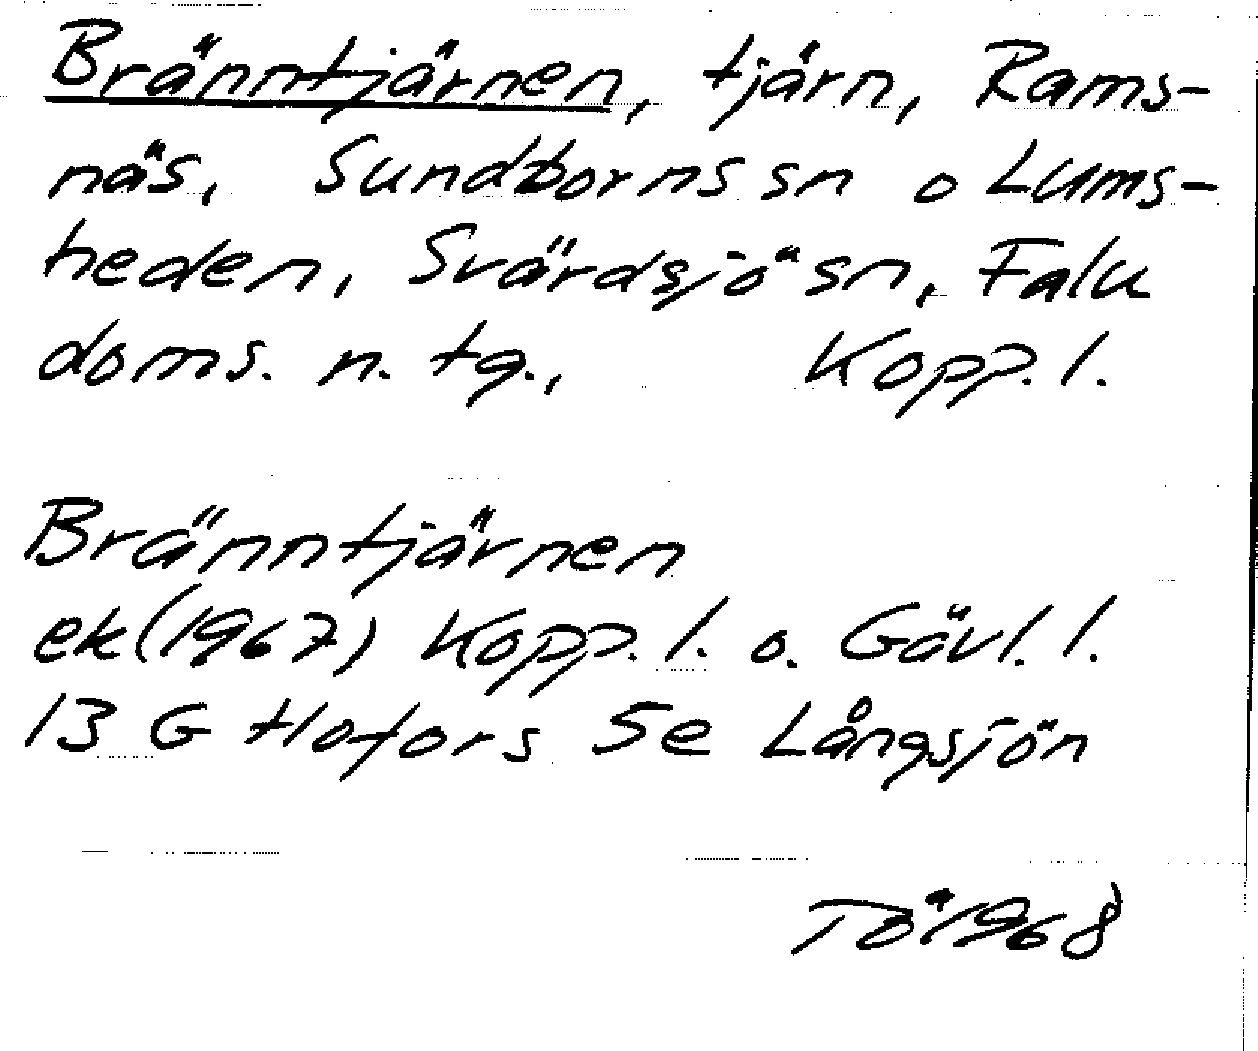 Bränntjärnen, tjärn, Rams-
näs, Sundborns sn o Lums-
heden, Svärdsjö sn, Falu
doms. n. tg., Kopp. l.
Bränntjärnen
ek (1967) Kopp. l. o. Gävl. l.
13 G Hofors 5e Långsjön
TÖ 1968